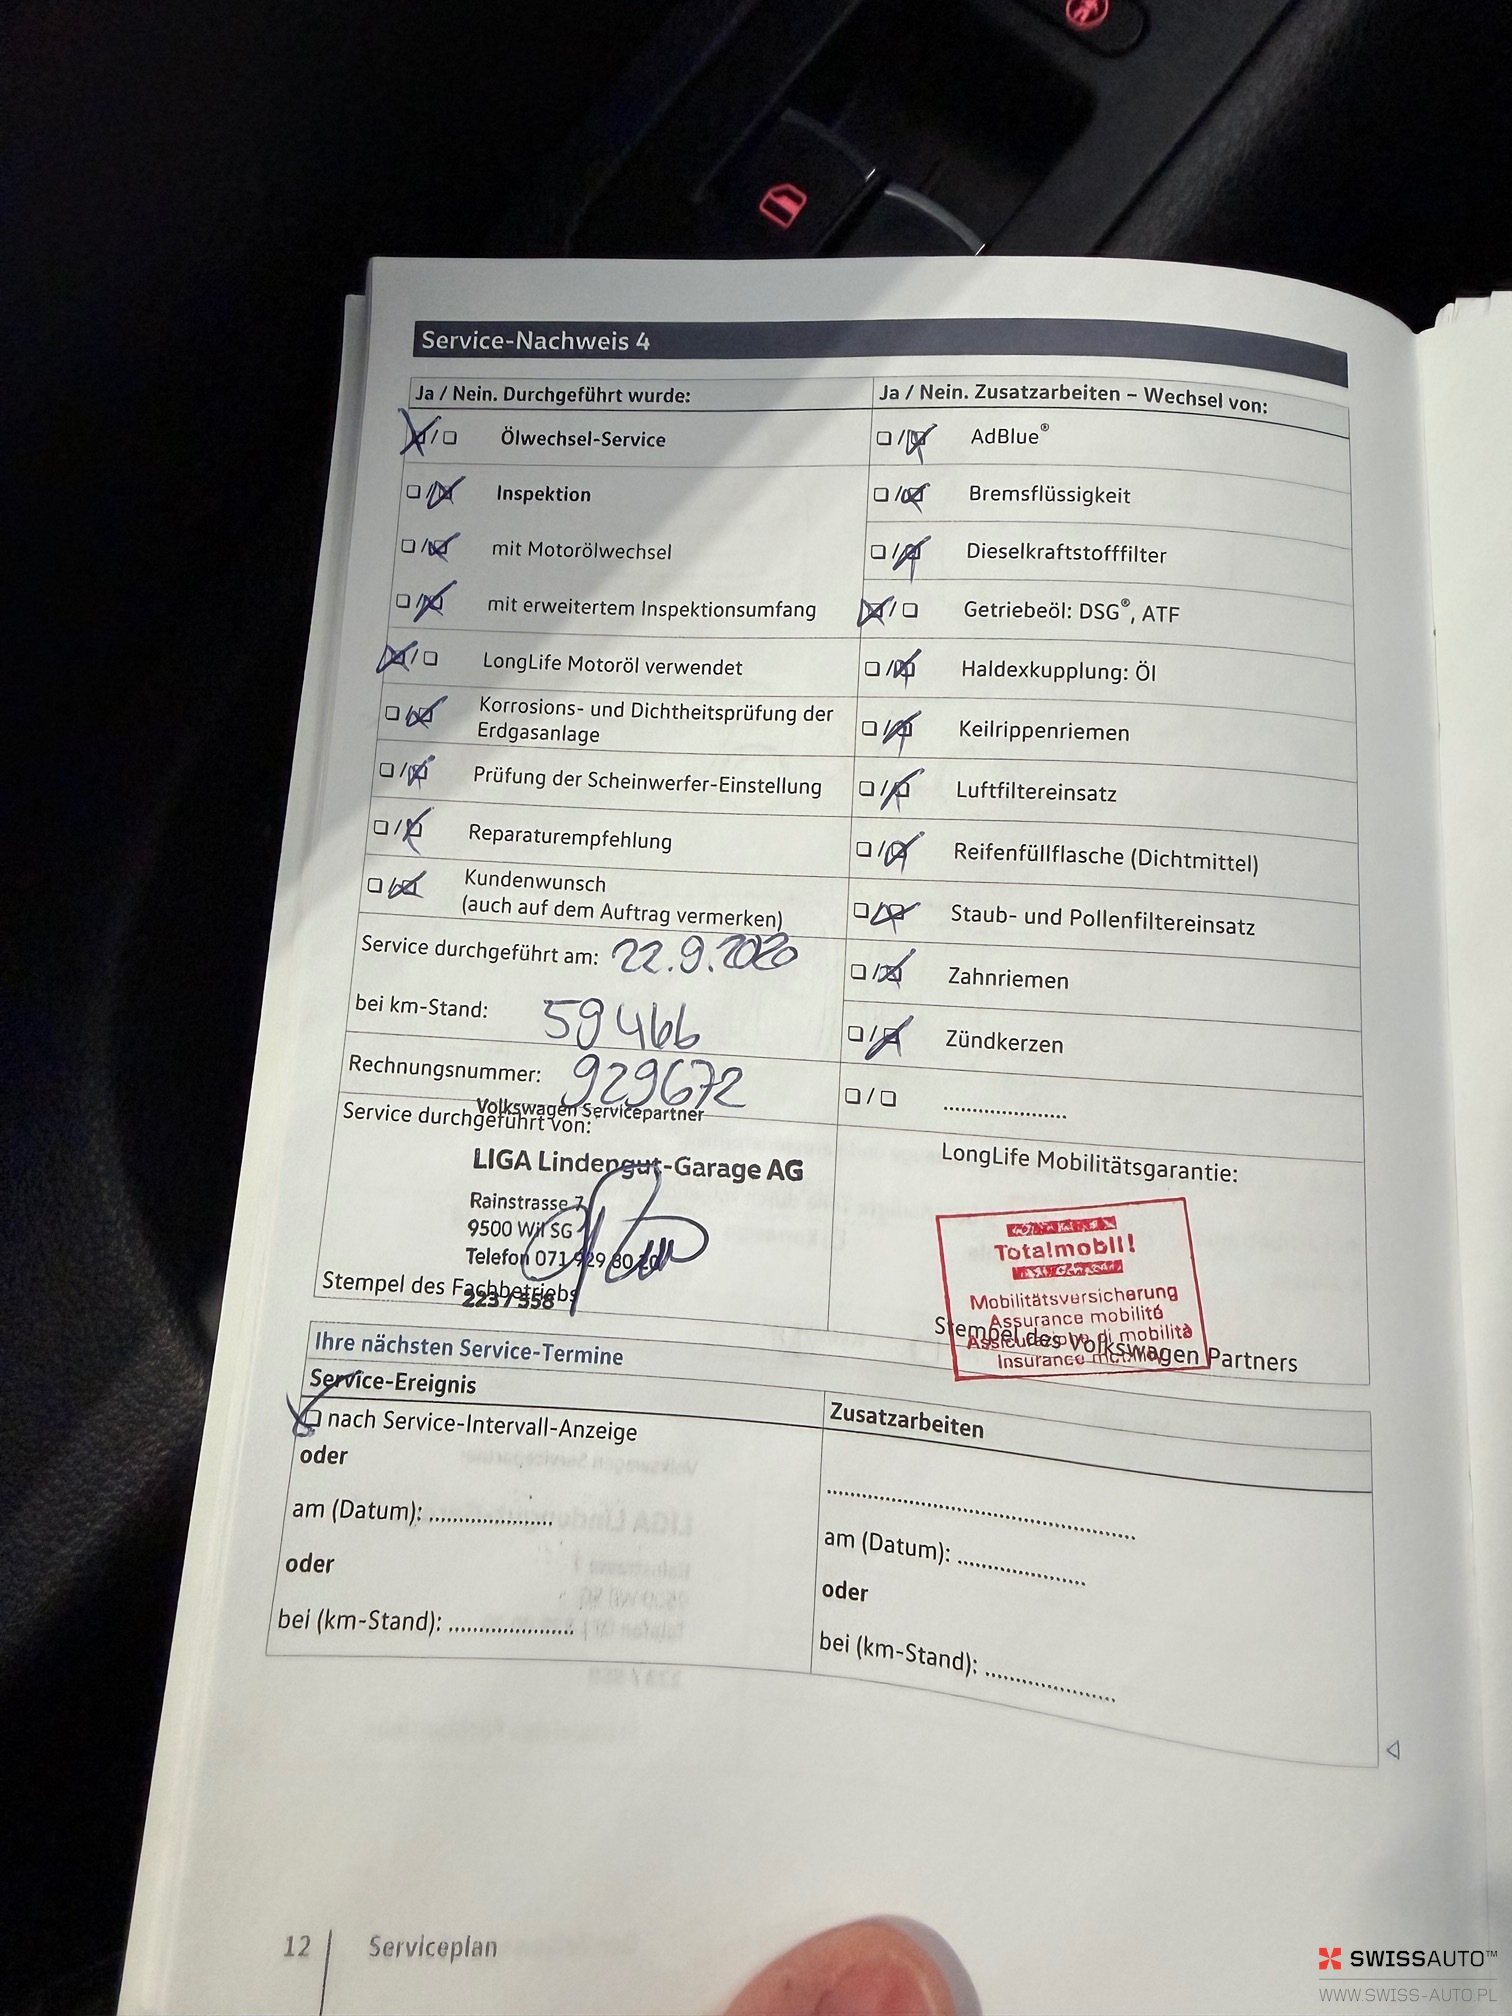 Service-Nachweis 4
Ja / Nein. Durchgeführt wurde:
Ölwechsel-Service
Inspektion
mit Motorölwechsel
mit erweitertem Inspektionsumfang
LongLife Motoröl verwendet
Korrosions- und Dichtheitsprüfung der
Erdgasanlage
Prüfung der Scheinwerfer-Einstellung
Reparaturempfehlung
Kundenwunsch
(auch auf dem Auftrag vermerken)
Service durchgeführt am: 22.9.2020
bei km-Stand: 59466
Rechnungsnummer: 929672
Service durchgeführt von:
Volkswagen Servicepartner
LIGA Lindengut-Garage AG
Rainstrasse 7
9500 Wil SG
Telefon 071 929 80 20
223 / 558
Stempel des Fachbetriebs
Ja / Nein. Zusatzarbeiten – Wechsel von:
AdBlue®
Bremsflüssigkeit
Dieselkraftstofffilter
Getriebeöl: DSG®, ATF
Haldexkupplung: Öl
Keilrippenriemen
Luftfiltereinsatz
Reifenfüllflasche (Dichtmittel)
Staub- und Pollenfiltereinsatz
Zahnriemen
Zündkerzen
....................
LongLife Mobilitätsgarantie:
Totalmobil!
Mobilitätsversicherung
Assurance mobilité
Assicurazione di mobilità
Insurance
Stempel des Volkswagen Partners
Ihre nächsten Service-Termine
Service-Ereignis
nach Service-Intervall-Anzeige
oder
am (Datum): ....................
oder
bei (km-Stand): ....................
Zusatzarbeiten
..................................................
am (Datum): ....................
oder
bei (km-Stand): ....................
12 Serviceplan
SWISSAUTO™
WWW.SWISS-AUTO.PL